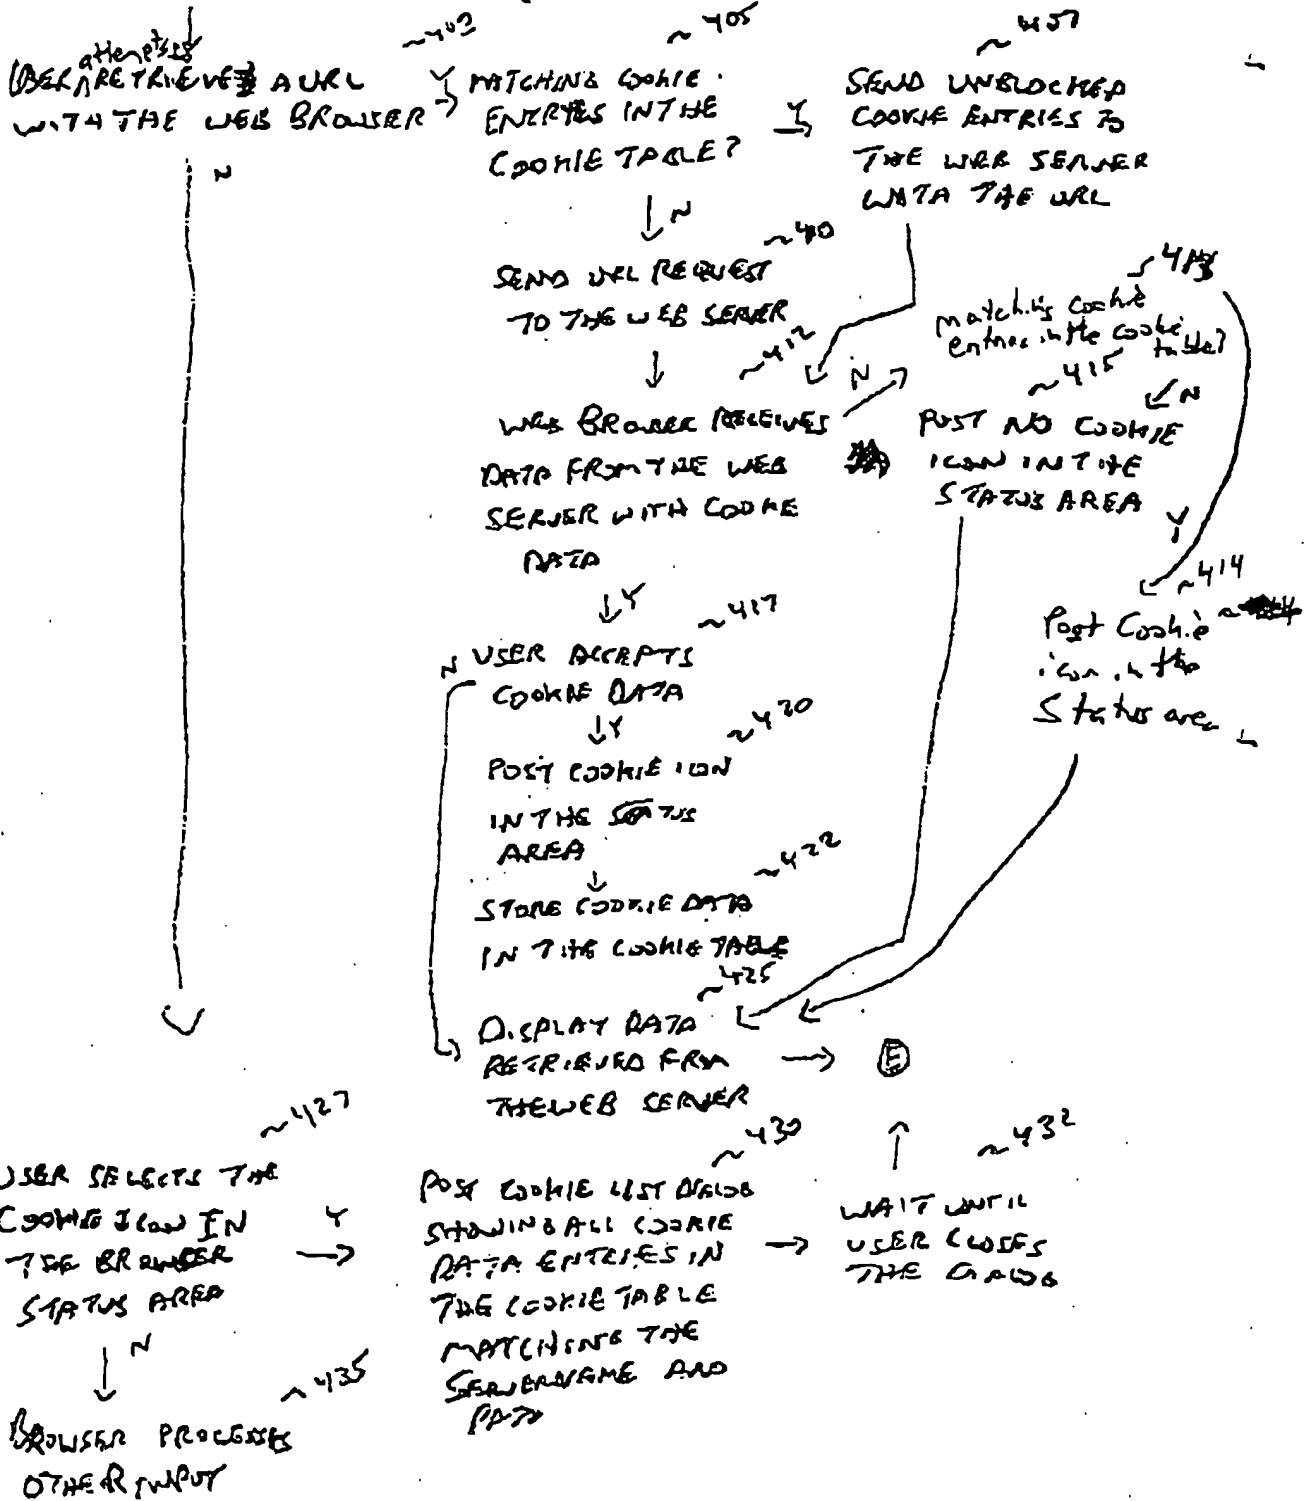 attempts to
~403
USER RETRIEVES A URL
WITH THE WEB BROWSER
Y
~405
MATCHING COOKIE
ENTRYES IN THE
COOKIE TABLE?
Y
~407
SEND UNBLOCKED
COOKIE ENTRIES TO
THE WEB SERVER
WITH THE URL
N
N
~410
SEND URL REQUEST
TO THE WEB SERVER
~413
matching cookie
entries in the cookie
table?
~412
WEB BROWSER RECEIVES
DATA FROM THE WEB
SERVER WITH COOKIE
DATA
N
~415
N
POST NO COOKIE
ICON IN THE
STATUS AREA
Y
Y
~414
Post Cookie
icon in the
Status area
~417
N
USER ACCEPTS
COOKIE DATA
Y
~420
POST COOKIE ICON
IN THE STATUS
AREA
~422
STORE COOKIE DATA
IN THE COOKIE TABLE
~425
DISPLAY DATA
RETRIEVED FROM
THE WEB SERVER
E
~427
USER SELECTS THE
COOKIE ICON IN
THE BROWSER
STATUS AREA
Y
~430
POST COOKIE LIST DIALOG
SHOWING ALL COOKIE
DATA ENTRIES IN
THE COOKIE TABLE
MATCHING THE
SERVERNAME AND
PATH
~432
WAIT UNTIL
USER CLOSES
THE DIALOG
N
~435
BROWSER PROCESSES
OTHER INPUT